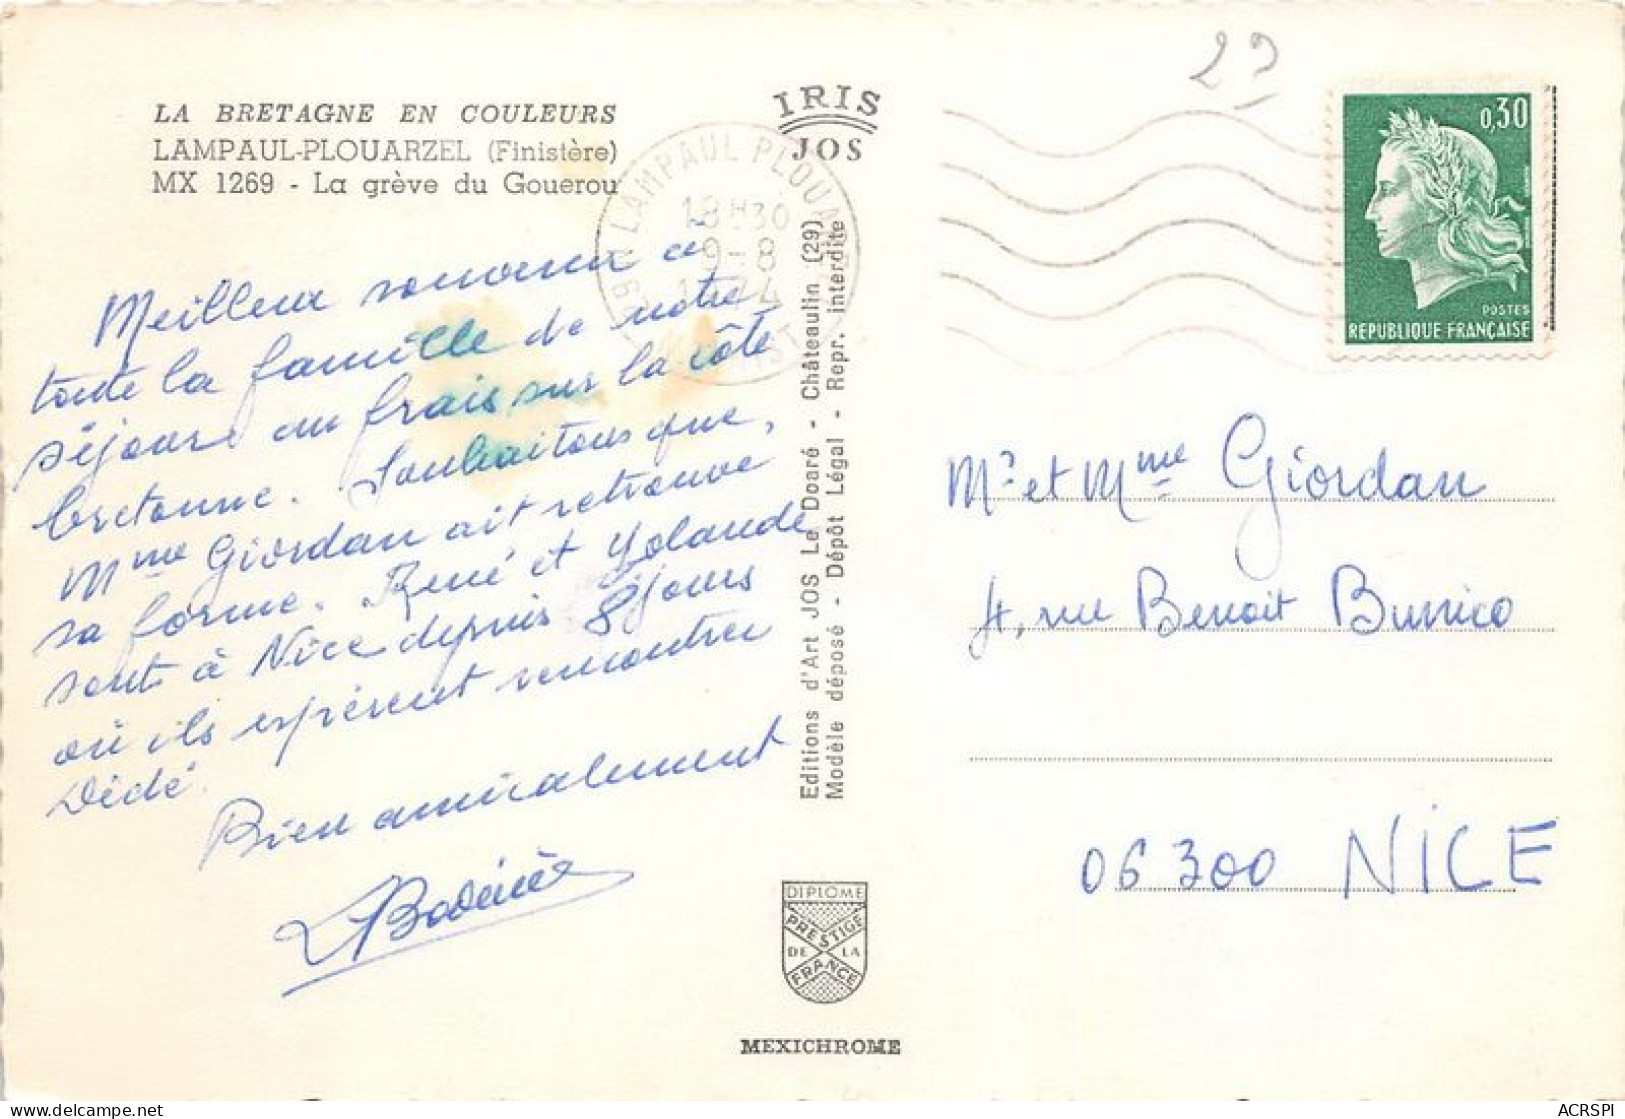 LA BRETAGNE EN COULEURS
LAMPAUL-PLOUARZEL (Finistère)
MX 1269 - La grève du Gouerou
IRIS
JOS
29 LAMPAUL PLOUA
18H30
9-8
Meilleur souvenir à
toute la famille de notre
séjour au frais sur la côte
bretonne. Souhaitons que,
Mme Giordan ait retrouvé
sa forme. René et Yolande
sont à Nice depuis 8 jours
où ils espèrent rencontrer
Dédé.
Bien amicalement
Editions d'Art JOS Le Doaré - Châteaulin (29)
Modèle déposé - Dépôt Légal - Repr. interdite
DIPLOME
PRESTIGE
DE LA
FRANCE
MEXICHROME
29
0,30
POSTES
REPUBLIQUE FRANÇAISE
Mr et Mme Giordan
4, rue Benoit Bunico
06300 NICE
ACRSPI